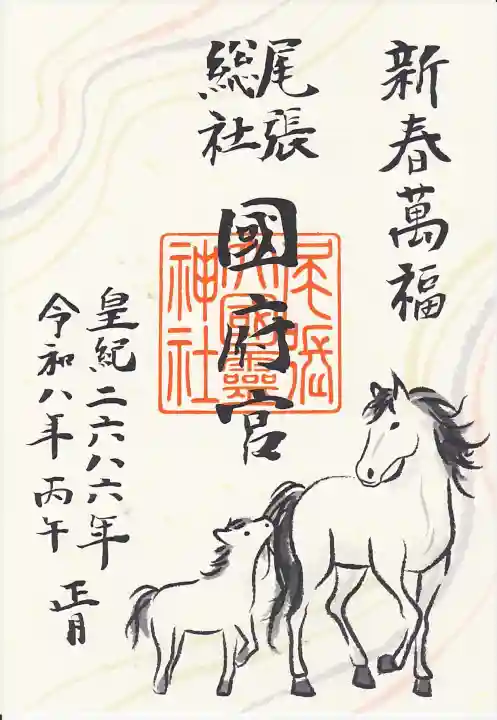 新春萬福
尾張
総社
國府宮
尾張
大國霊
神社
皇紀二六八六年
令和八年 丙午 正月